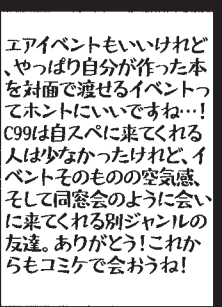 エアイベントもいいけれど
、やっぱり自分が作った本
を対面で渡せるイベントっ
てホントにいいですね…！
C99は自スペに来てくれる
人は少なかったけれど、イ
ベントそのものの空気感、
そして同窓会のように会い
に来てくれる別ジャンルの
友達。ありがとう！これか
らもコミケで会おうね！